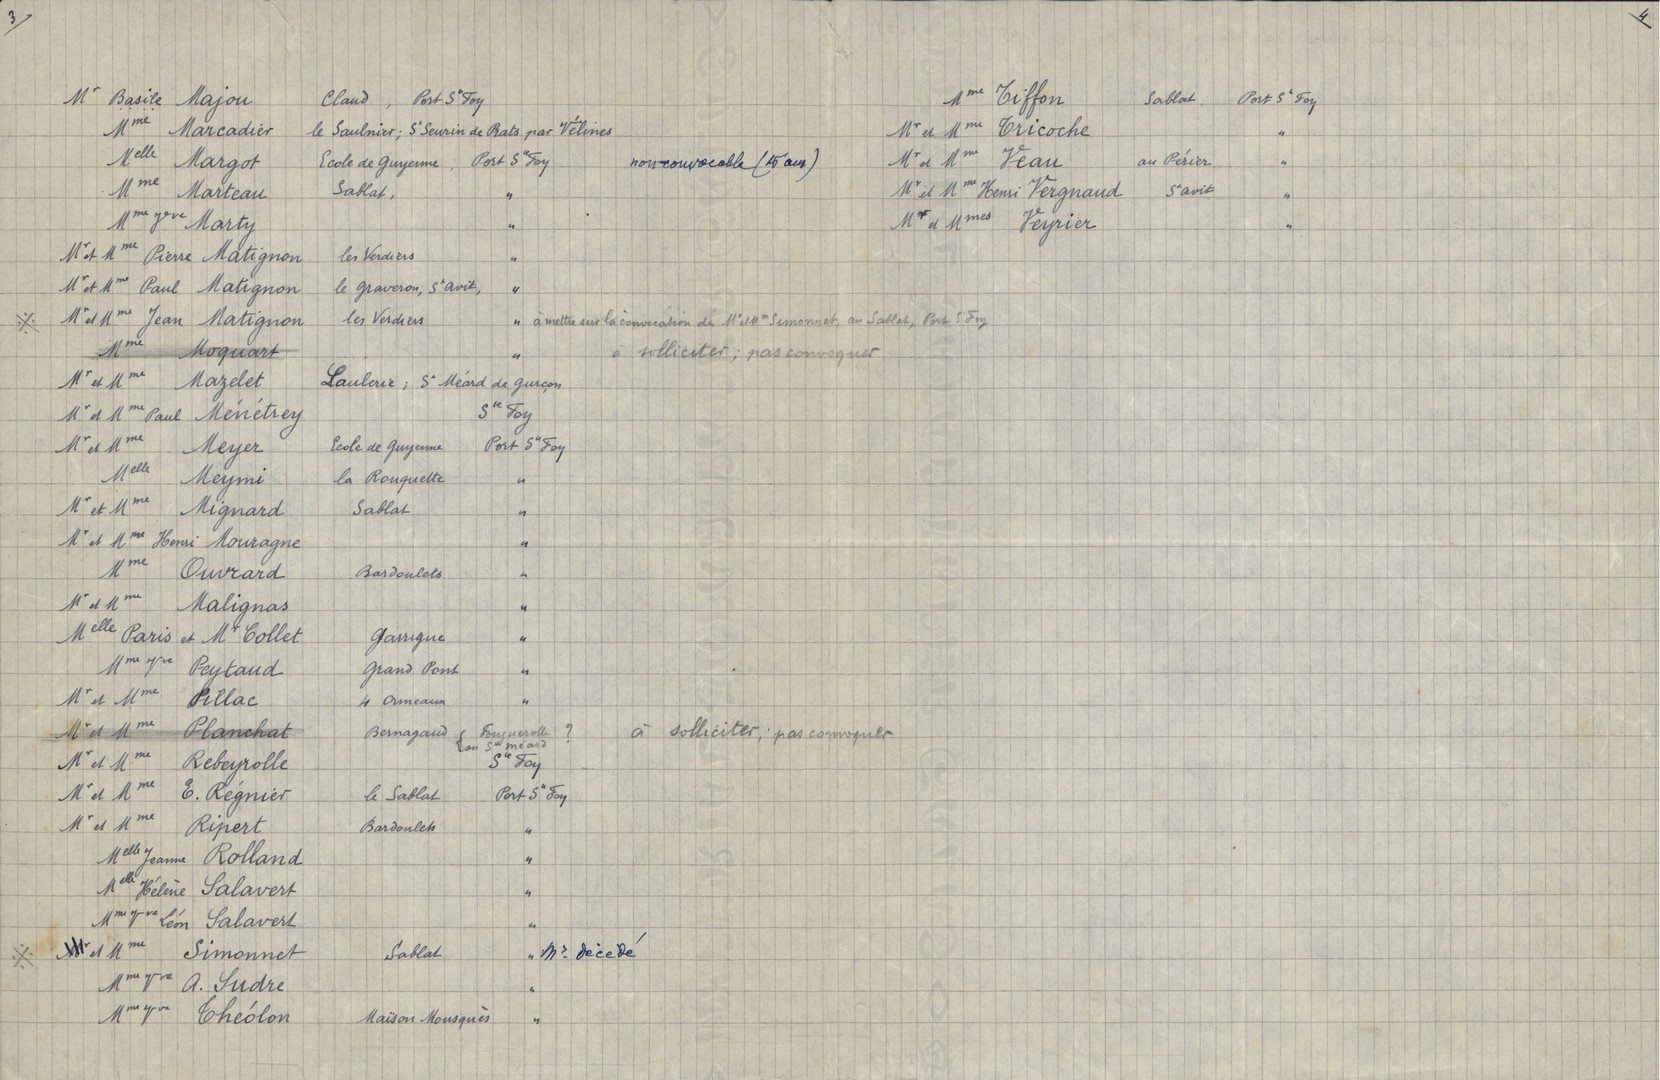 3
Mr Basile Majou Claud, Port Ste Foy
Mme Marcadier le Saulnier; St Seurin de Prats par Vélines
Melle Margot Ecole de Guyenne, Port Ste Foy non convocable (15 ans)
Mme Marteau Sablat, "
Mme Vve Marty "
Mr et Mme Pierre Matignon les Verdiers "
Mr et Mme Paul Matignon le Graveron, St Avit, "
Mr et Mme Jean Matignon les Verdiers " à mettre sur la convocation de Mr et Mme Simonnet, au Sablat, Port Ste Foy
Mme Moquart " à solliciter; pas convoquer
Mr et Mme Mazelet Laulerie; St Méard de Gurçon
Mr et Mme Paul Ménétrey Ste Foy
Mr et Mme Meyer Ecole de Guyenne Port Ste Foy
Melle Meymi la Rouquette "
Mr et Mme Mignard Sablat "
Mr et Mme Henri Mouragne "
Mme Ouvrard Bardoulets "
Mr et Mme Malignas "
Melle Paris et Mr Collet Garrigue "
Mme Vve Peytaud Grand Pont "
Mr et Mme Pillac 4 Ormeaux "
Mr et Mme Planchat Bernagaud { Fouguerolle ? à solliciter; pas convoquer
ou St Méard
Mr et Mme Rebeyrolle Ste Foy
Mr et Mme E. Régnier le Sablat Port Ste Foy
Mr et Mme Ripert Bardoulets "
Melle Jeanne Rolland "
Melle Hélène Salavert "
Mme Vve Léon Salavert "
Mr et Mme Simonnet Sablat " Mr décédé
Mme Vve A. Sudre "
Mme Vve Théolon Maison Mousquès "
4
Mme Tiffon Sablat Port Ste Foy
Mr et Mme Tricoche "
Mr et Mme Veau au Périer "
Mr et Mme Henri Vergnaud St Avit "
Mr et Mmes Veyrier "